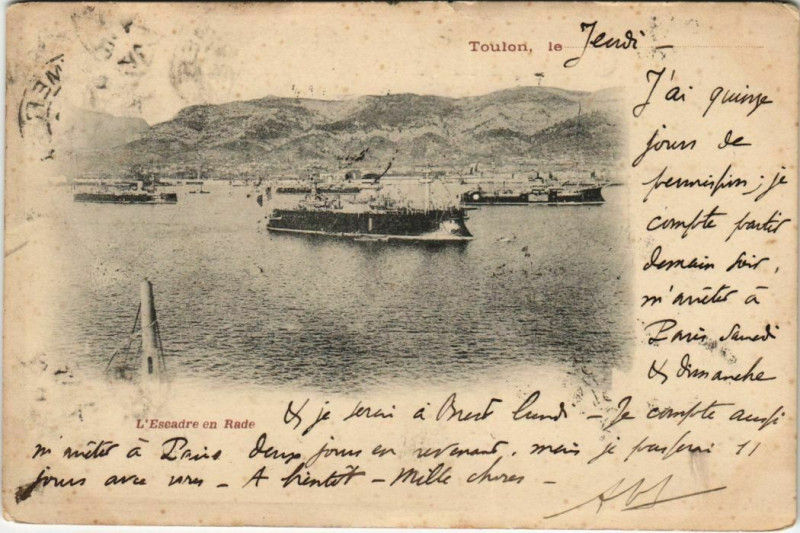 Toulon, le Jeudi –
J'ai quinze
jours de
permission ; je
compte partir
demain soir,
m'arrêter à
Paris samedi
& dimanche
L'Escadre en Rade
& je serai à Brest lundi – Je compte aussi
m'arrêter à Paris deux jours en revenant, mais je passerai 11
jours avec vous – A bientôt – Mille choses –